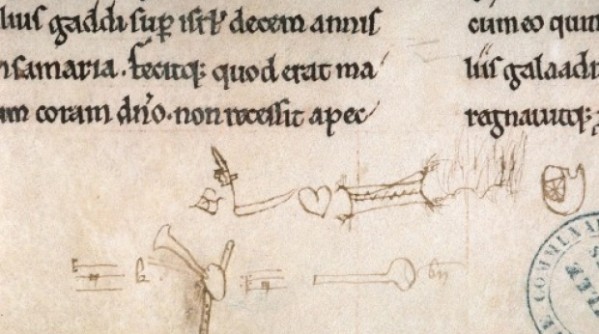 lius gaddi sup isrl decem annis
samaria. fecitq; quod erat ma
coram dno. non recessit apec
cum eo quin
liis galaadi
regnauitq;
COMMUNA